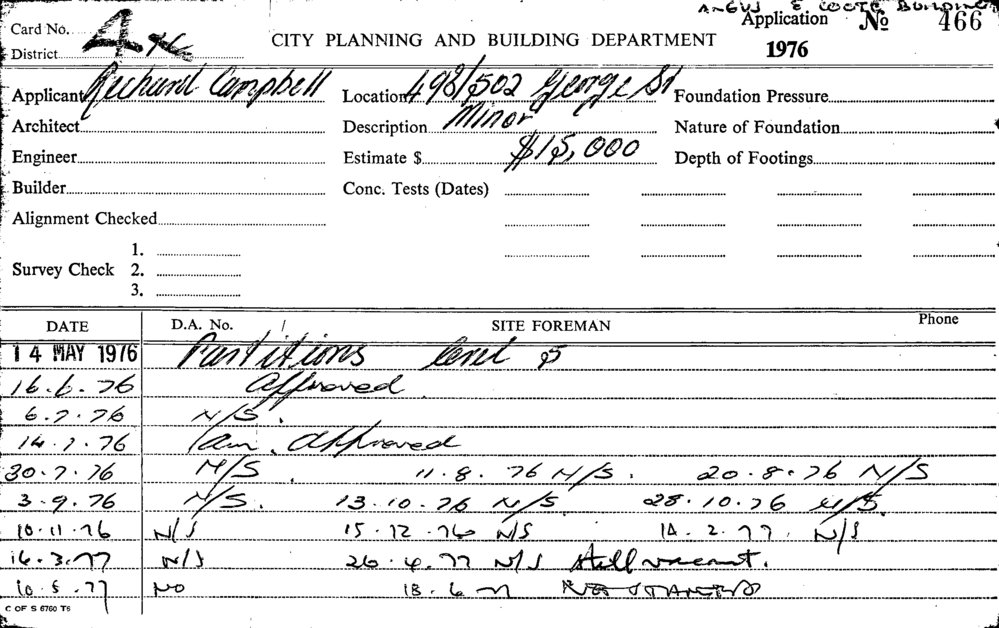 ANGUS & COOTE BUILDING
Card No. 4
Application No 466
District
CITY PLANNING AND BUILDING DEPARTMENT
1976
Applicant Richard Campbell Location 498/502 George St Foundation Pressure
Architect Description Minor Nature of Foundation
Engineer Estimate $ $15,000 Depth of Footings
Builder Conc. Tests (Dates)
Alignment Checked
1.
Survey Check 2.
3.
DATE D.A. No. / SITE FOREMAN Phone
14 MAY 1976 Partitions level 5
16.6.76 Approved
6.7.76 N/S.
14.7.76 Approved
30.7.76 N/S 11.8.76 N/S. 20.8.76 N/S
3.9.76 N/S. 13.10.76 N/S. 28.10.76 N/S.
10.11.76 N/S 15.12.76 N/S 14.2.77. N/S
16.3.77 N/S 26.4.77 N/S still vacant.
10.5.77 NO 13.6.77 NOT STARTED
C OF S 6760 T6